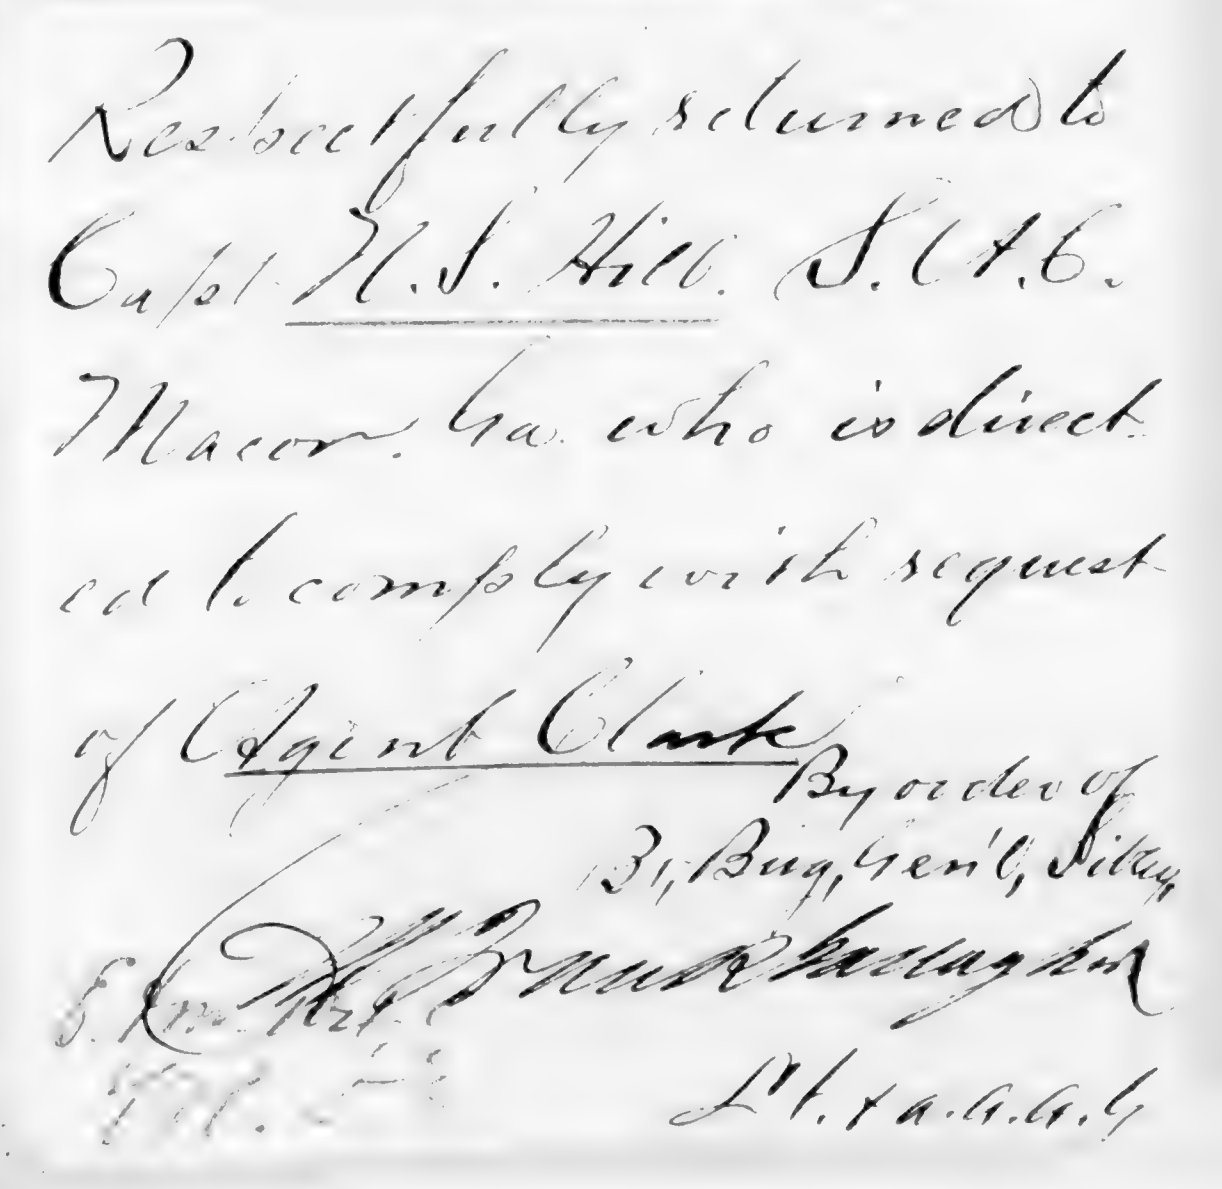 Respectfully returned to
Capt N. S. Hill. S. A. C.
Macon. Ga. who is direct
ed to comply with request
of Agent Clark
By order of
Br, Brig, Gen'l, Sibley,
Frank Gallagher
Lt. & a.a.a.G